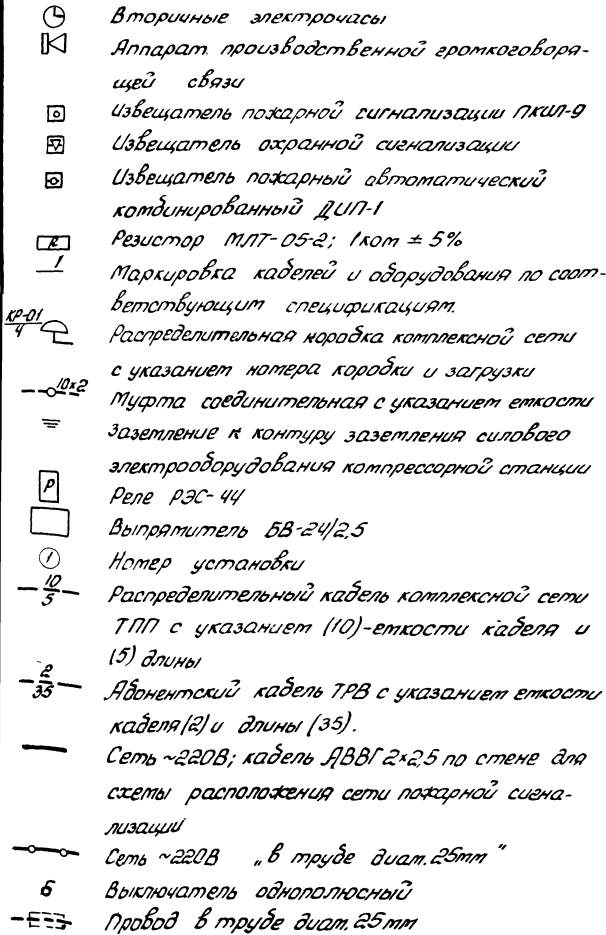 Вторичные электрочасы
Аппарат производственной громкоговоря-
щей связи
Извещатель пожарной сигнализации ПКИЛ-9
Извещатель охранной сигнализации
Извещатель пожарный автоматический
комбинированный ДИП-1
R Резистор МЛТ-05-2; 1ком ± 5%
1 Маркировка кабелей и оборудования по соот-
ветствующим спецификациям.
КР-01
4 Распределительная коробка комплексной сети
с указанием номера коробки и загрузки
10×2 Муфта соединительная с указанием емкости
Заземление к контуру заземления силового
электрооборудования компрессорной станции
Р Реле РЭС-44
Выпрямитель БВ-24/2,5
1 Номер установки
10
5 Распределительный кабель комплексной сети
ТПП с указанием (10)-емкости кабеля и
(5) длины
2
35 Абонентский кабель ТРВ с указанием емкости
кабеля (2) и длины (35).
Сеть ~220В; кабель АВВГ 2×2,5 по стене для
схемы расположения сети пожарной сигна-
лизации
Сеть ~220В „в труде диам. 25мм"
б Выключатель однополюсный
Провод в трубе диам. 25мм